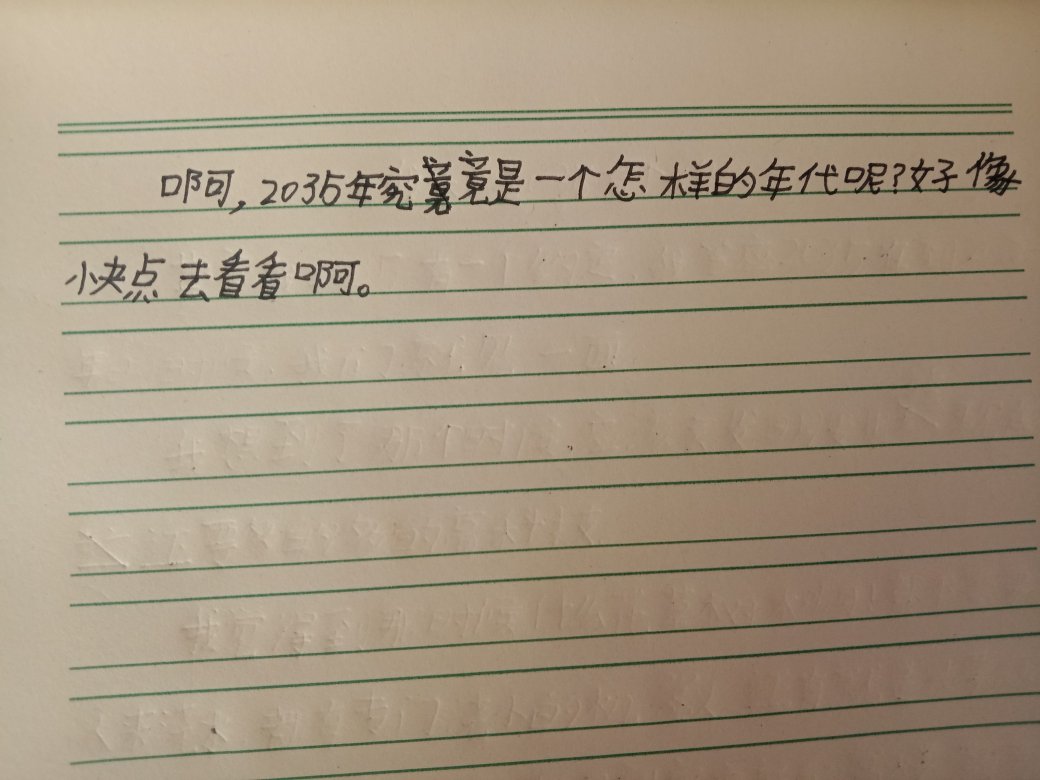 啊,2035年究竟是一个怎样的年代呢?好像
快点去看看啊。